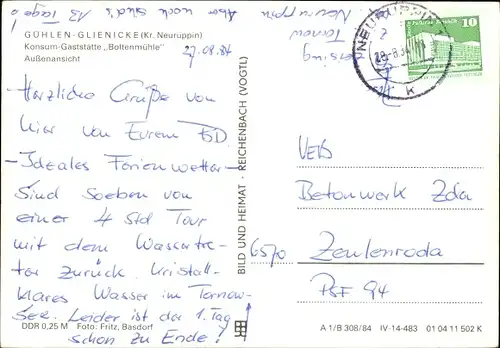 Aber noch sind's 13 Tage!
GÜHLEN-GLIENICKE (Kr. Neuruppin)
Konsum-Gaststätte „Boltenmühle"
Außenansicht
27.08.84
Herzliche Grüße von
hier von Eurem
– Ideales Ferienwetter –
Sind soeben von
einer 4 Std Tour
mit dem Wassertre-
ter zurück. Kristall-
klares Wasser im Tornow-
See. Leider ist der 1. Tag
schon zu Ende!
DDR 0,25 M Foto: Fritz, Basdorf
BILD UND HEIMAT REICHENBACH (VOGTL)
Tornow
Neuruppin
NEURUPPIN
10
k
VEB
Betonwerk Zda
6570 Zeulenroda
PSF 94
A 1/B 308/84 IV-14-483 01 04 11 502 K